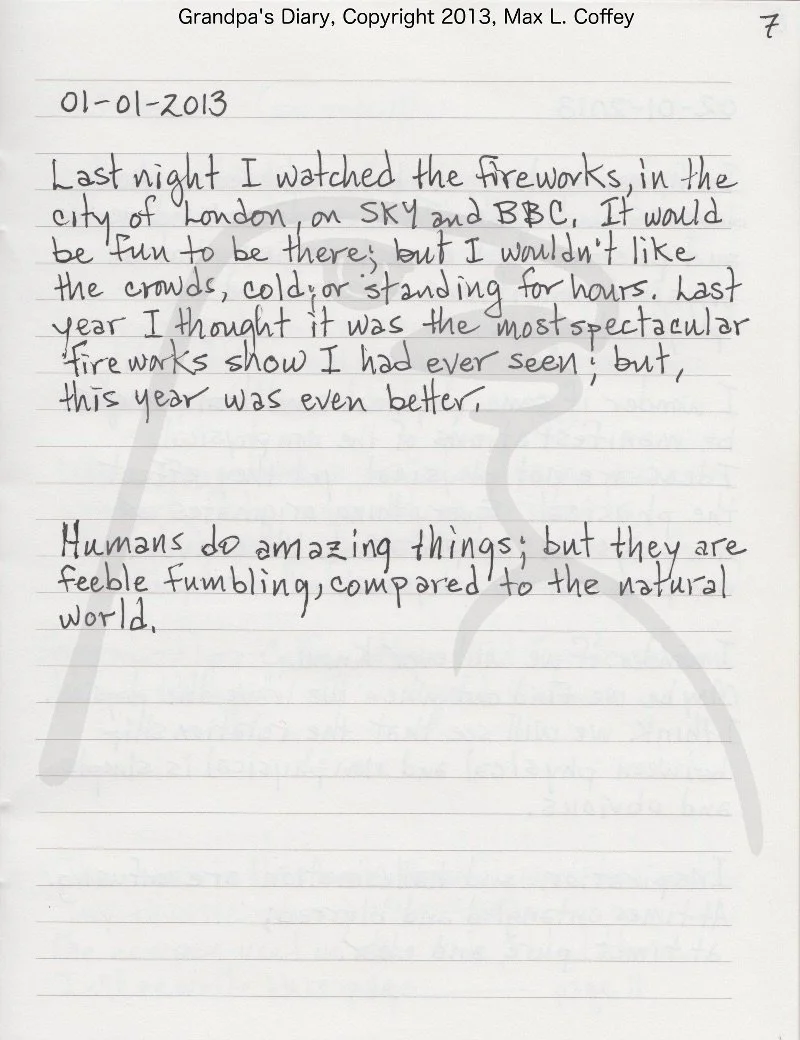 Grandpa's Diary, Copyright 2013, Max L. Coffey
7
01-01-2013
Last night I watched the fireworks, in the
city of London, on SKY and BBC. It would
be fun to be there; but I wouldn't like
the crowds, cold; or standing for hours. Last
year I thought it was the most spectacular
fireworks show I had ever seen; but,
this year was even better.
Humans do amazing things; but they are
feeble fumbling, compared to the natural
world.